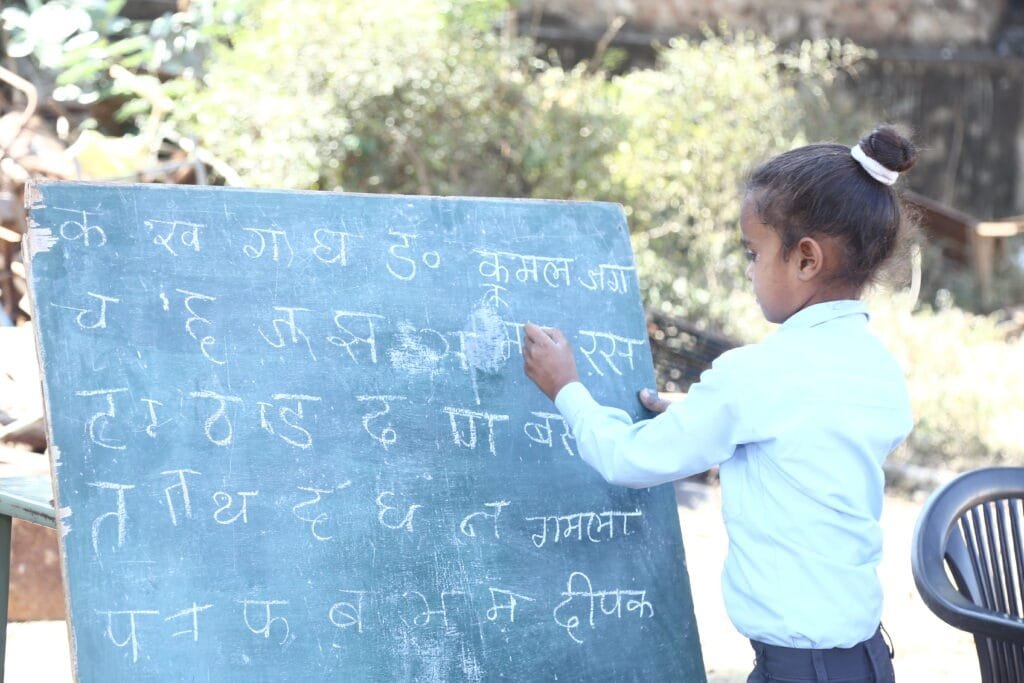 क ख ग घ ङ कमल जग
च छ ज झ रस
ट ठ ड ढ ण बस
त थ द ध न गमला
प फ ब भ म दीपक